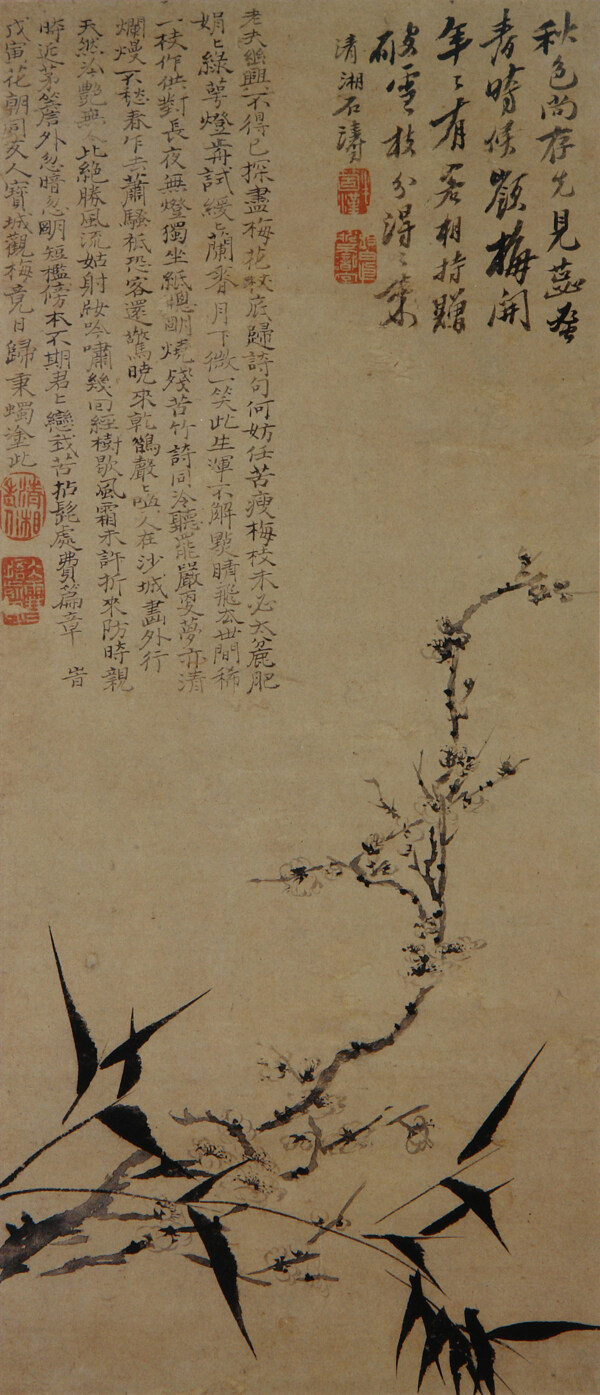 秋色尚存先見蕊發
春時候嶺梅開
年〻有客相持贈
破雪枝分得〻來
清湘石濤
老夫幽興不得已探盡梅花底歸詩句何妨任苦瘦梅枝未必太麄肥
娟〻綠萼燈前試緩〻蘭香月下微一笑此生渾不解點睛飛去世間稀
一枝作供對長夜無燈獨坐紙窗明燒殘苦竹詩同冷聽罷嚴更夢亦清
爛熳不愁春乍去蕭騷祗恐客還驚曉來乾鵲聲〻人在沙城畫外行
天然冷艷無人比絕勝風流姑射妝吟嘯幾回經樹歇風霜未許折來防時親
時近茅簷外忽暗忽明短檻傍本不期君〻戀我苦拈髭處費篇章 旹
戊寅花朝同友人寶城觀梅竟日歸秉蠋塗此